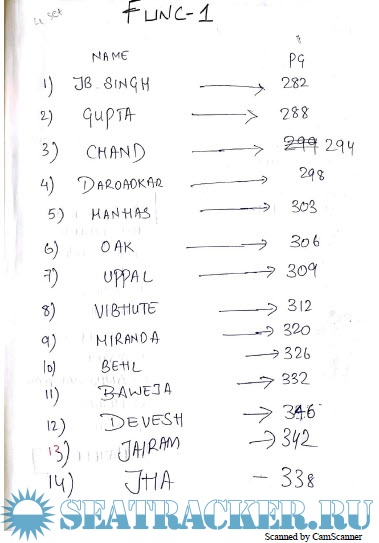 FUNC-1
NAME PG
1) JB SINGH → 282
2) GUPTA → 288
3) CHAND → 299 294
4) DAROADKAR → 298
5) MANHAS → 303
6) OAK → 306
7) UPPAL → 309
8) VIBHUTE → 312
9) MIRANDA → 320
10) BEHL → 326
11) BAWEJA → 332
12) DEVESH → 346
13) JAIRAM → 342
14) JHA – 338
SEATRACKER.RU
Scanned by CamScanner